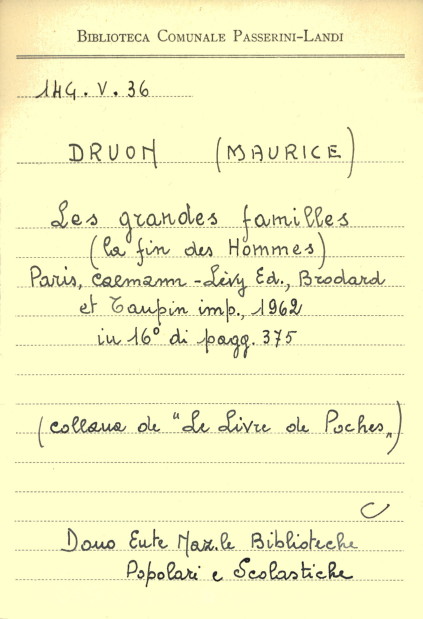 BIBLIOTECA COMUNALE PASSERINI-LANDI
14G. V. 36
DRUON (MAURICE)
Les grandes familles
(la fin des Hommes)
Paris, Calmann-Lévy Ed., Brodard
et Taupin imp., 1962
in 16° di pagg. 375
(collana de "Le Livre de Poches„)
C
Dono Ente Naz.le Biblioteche
Popolari e Scolastiche